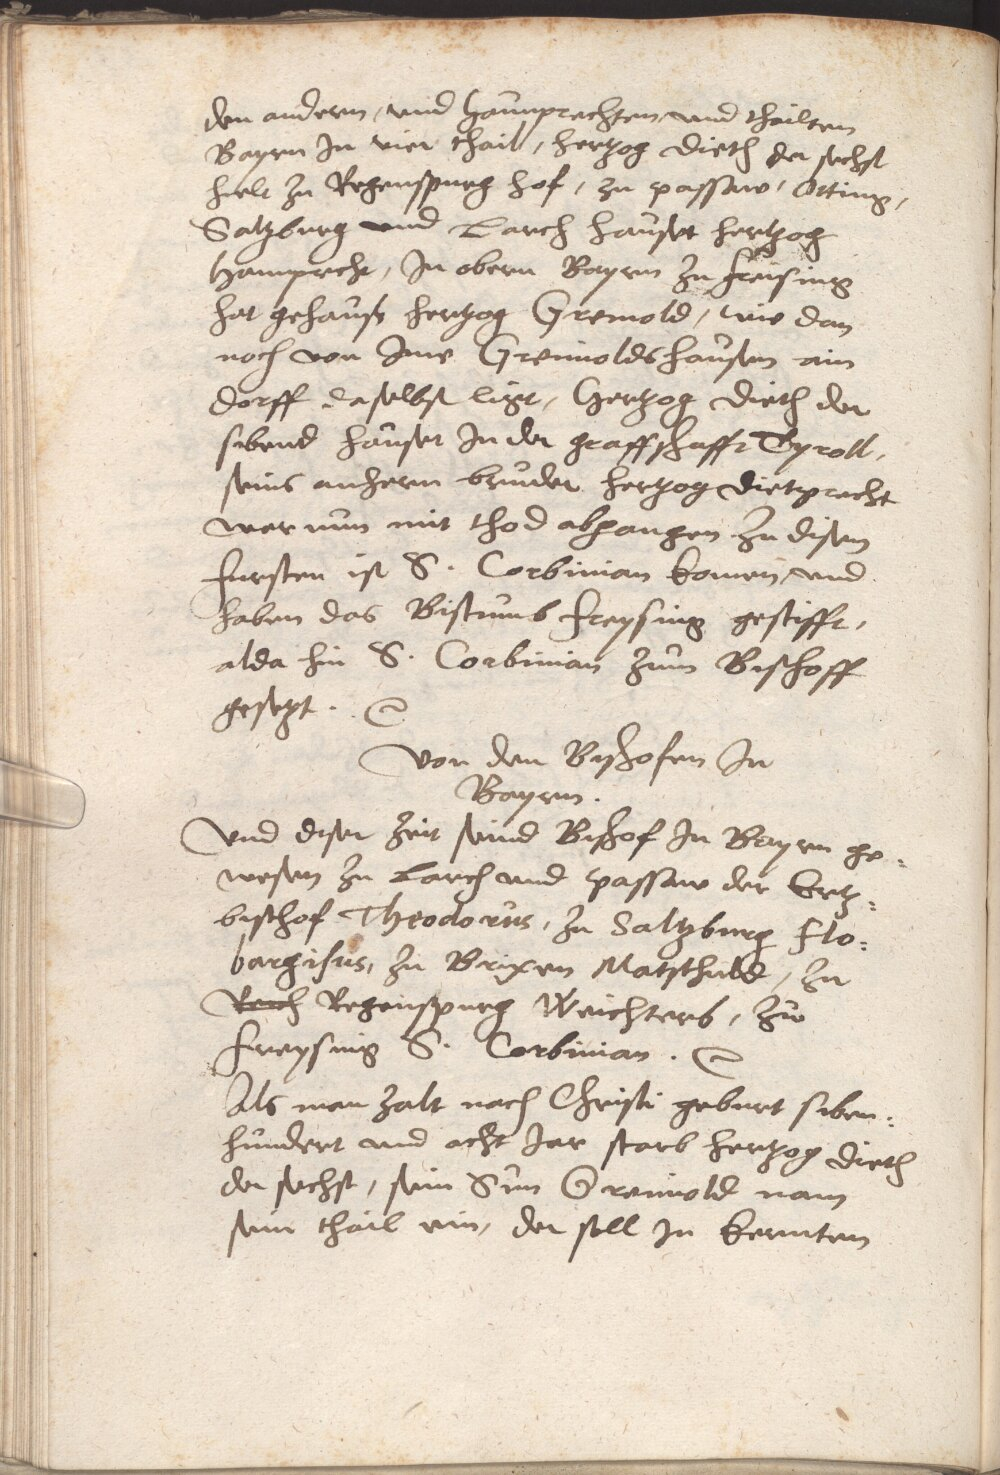 den andern, und Haunprechten, und thailten
Bayrn In vier thail, Hertzog Dieth der sechst
hielt zu Regenspurg hof, zu passaw, Otting,
Saltzburg und Larch hauset Hertzog
Hanprecht, In obern Bayrn zu freising
hat gehaust hertzog Grimold, wie dan
noch von Ime Grimoldshausen ain
dorff daselbst ligt, Hertzog Dieth der
sibend hauset In der graffschafft Tyroll,
seins anhern bruder hertzog Dietprecht
war nun mit thod abgangen. Zu disen
fursten ist S. Corbinian komen, und
haben das Bistumb freysing gestifft,
alda hin S. Corbinian zum Bischoff
gesetzt.
Von den Bischofen In
Bayrn.
Und diser zeit seind Bischof In Bayrn ge=
wesen zu Larch und passaw der Ertz=
bischof Theodorus, zu Saltzburg Flo=
bargisus, zu Brixen Matschuld, zu
Regenspurg Weichterb, zu
freysing S. Corbinian.
Als man zalt nach Christi geburt siben=
hundert und acht Jar starb hertzog Dieth
der sechst, sein Sun Grimold nam
sein thail ein, der soll In Kernten